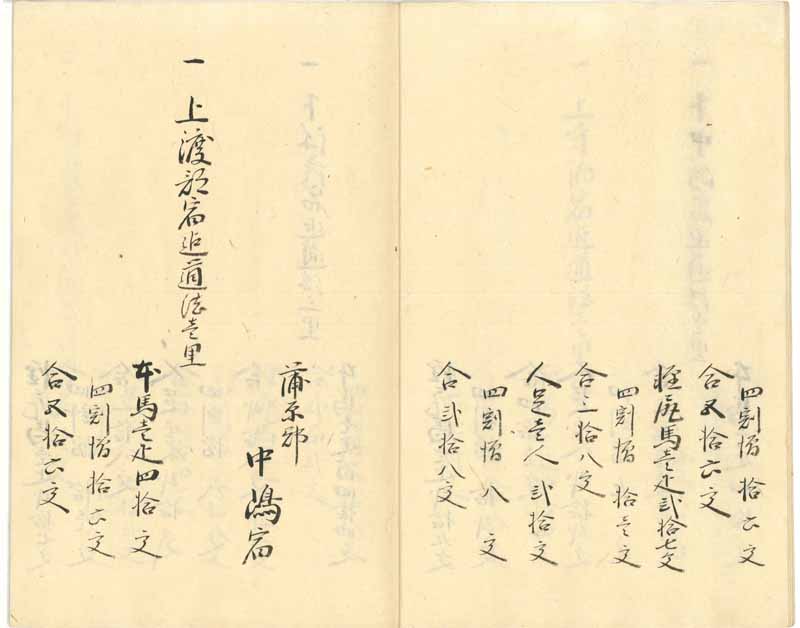 四割増拾六文
合五拾六文
軽尻馬壱疋弐拾七文
四割増拾壱文
合三拾八文
人足壱人弐拾文
四割増八文
合弐拾八文
蒲原郡
中嶋宿
一上渡部宿迄道法壱里
本馬壱疋四拾文
四割増拾六文
合五拾六文